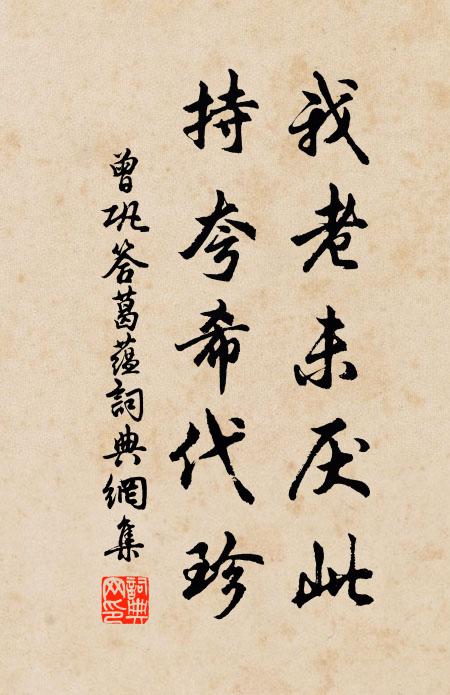 我老未厌此
持夸希代珍
曾巩答葛蕴詞典網集
詞典網印